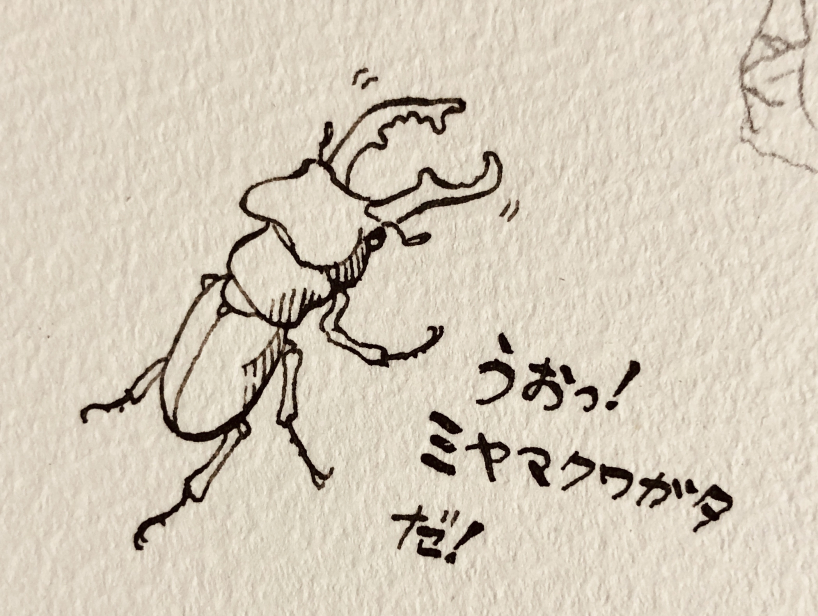 うおっ!
ミヤマクワガタ
だ!